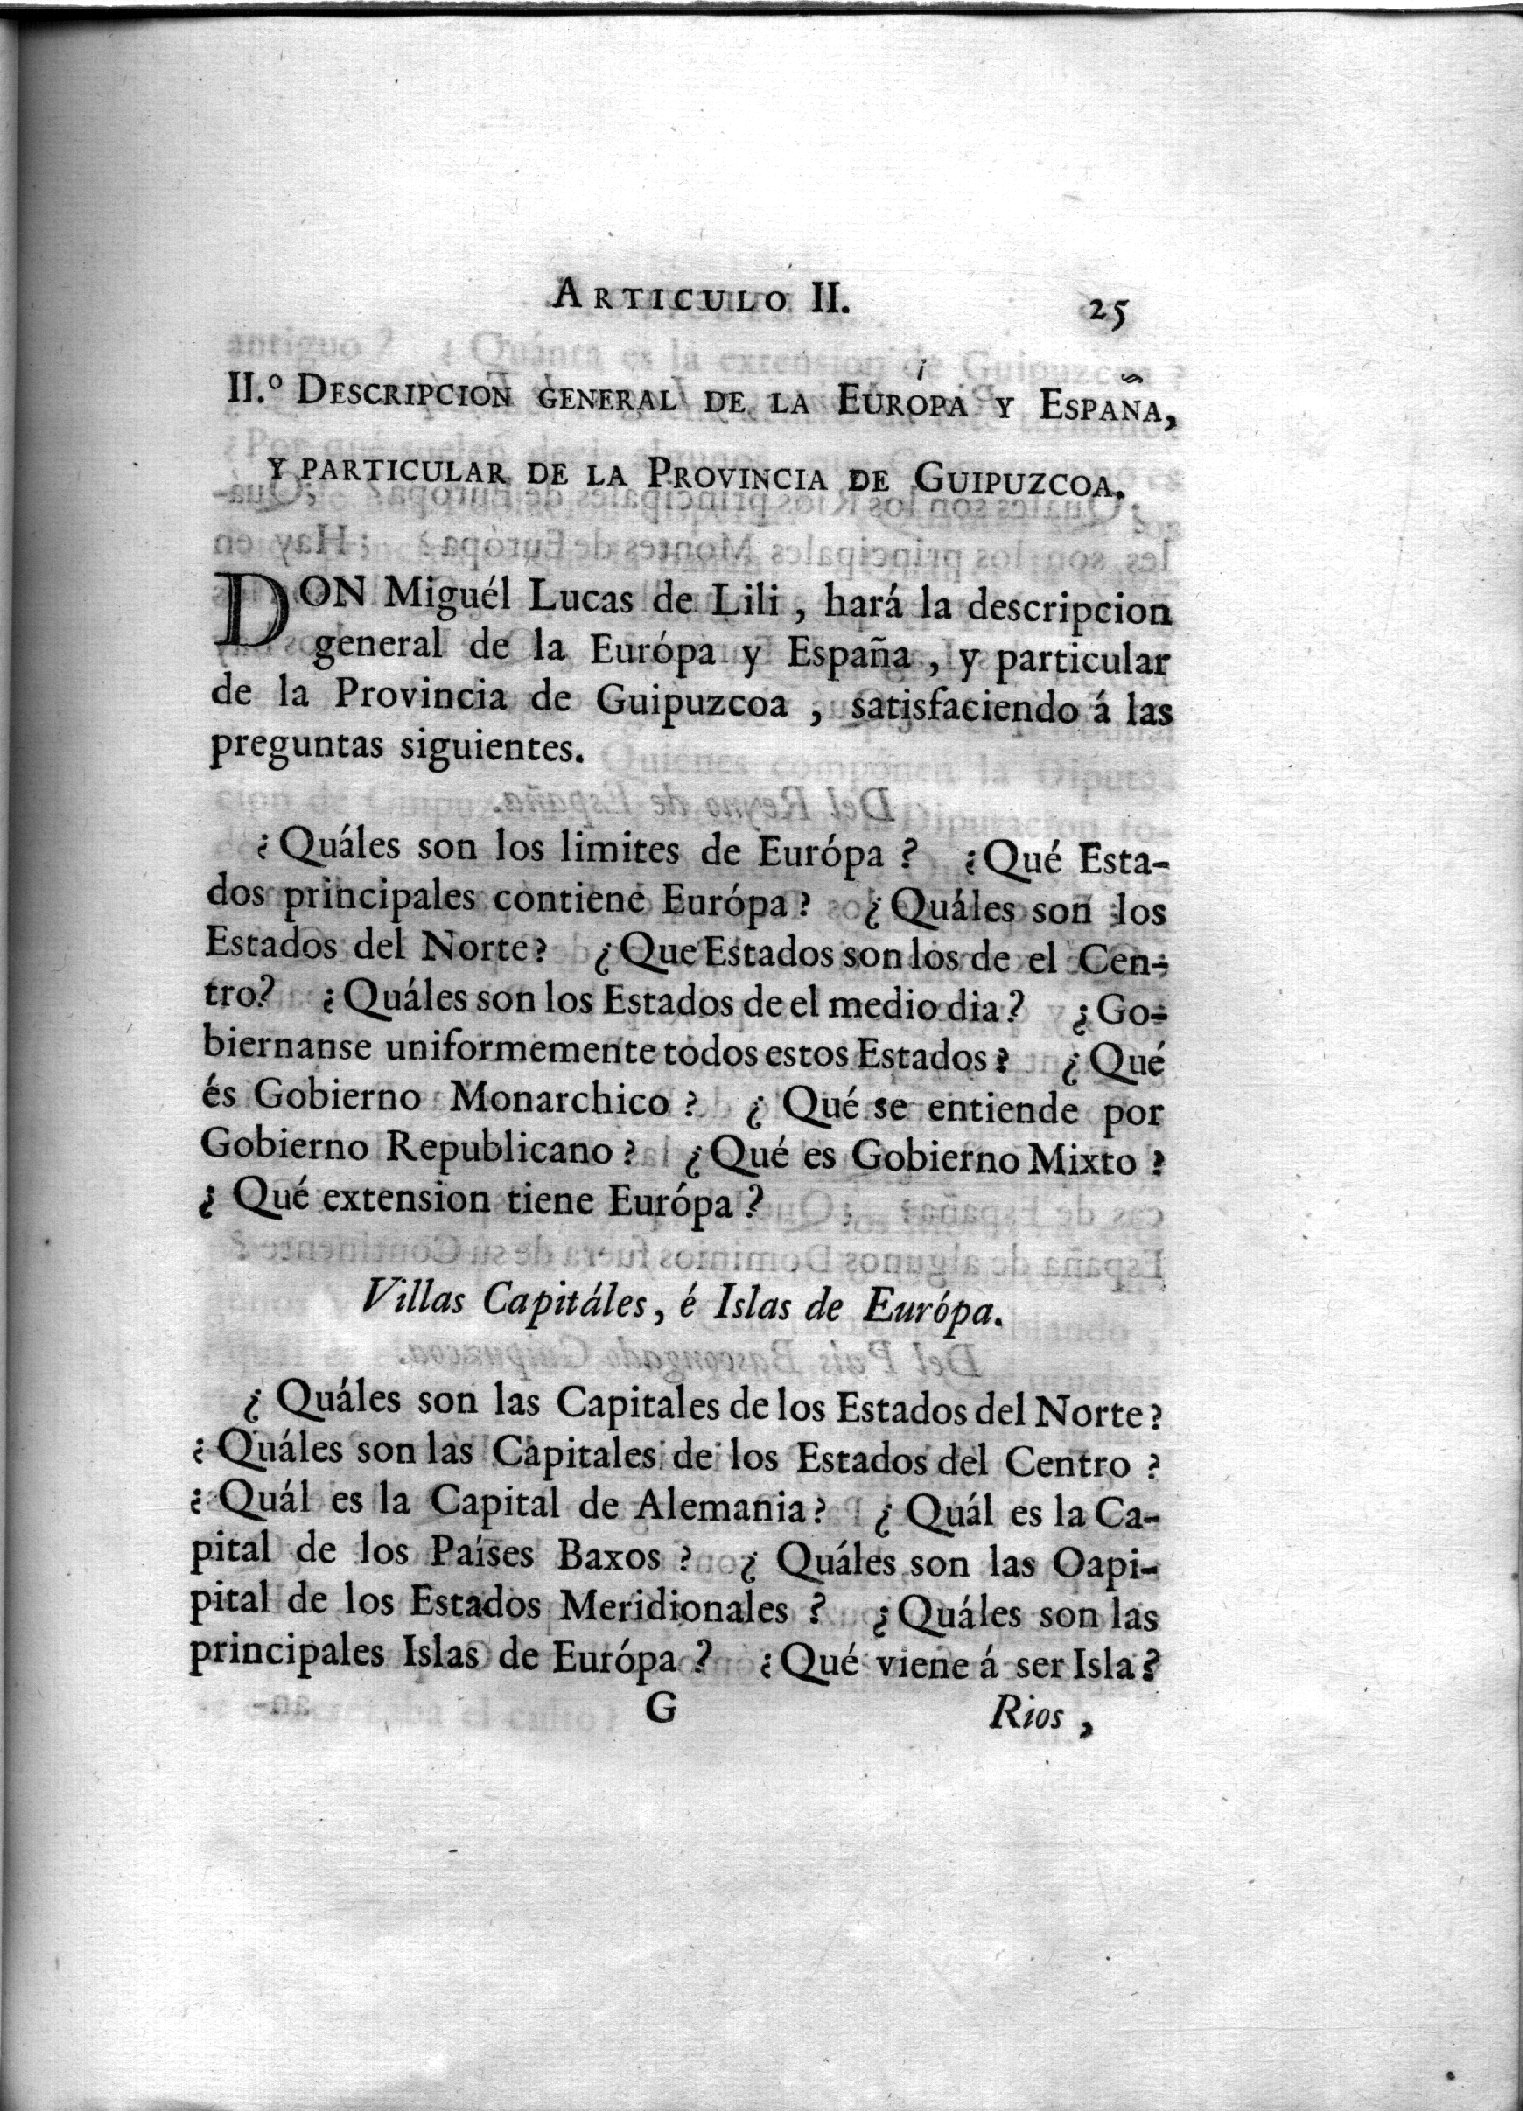 ARTICULO II. 25
II.º DESCRIPCION GENERAL DE LA EUROPA Y ESPAÑA,
Y PARTICULAR DE LA PROVINCIA DE GUIPUZCOA.
DON Miguél Lucas de Lili , hará la descripcion
general de la Európa y España , y particular
de la Provincia de Guipuzcoa , satisfaciendo á las
preguntas siguientes.
¿Quáles son los limites de Európa ? ¿Qué Esta-
dos principales contiene Európa ? ¿Quáles son los
Estados del Norte? ¿Que Estados son los de el Cen-
tro? ¿Quáles son los Estados de el medio dia? ¿Go-
biernanse uniformemente todos estos Estados? ¿Qué
és Gobierno Monarchico ? ¿ Qué se entiende por
Gobierno Republicano ? ¿Qué es Gobierno Mixto ?
¿ Qué extension tiene Európa ?
Villas Capitáles, é Islas de Európa.
¿ Quáles son las Capitales de los Estados del Norte?
¿Quáles son las Capitales de los Estados del Centro ?
¿Quál es la Capital de Alemania? ¿Quál es la Ca-
pital de los Países Baxos ? ¿ Quáles son las Oapi-
pital de los Estados Meridionales ? ¿Quáles son las
principales Islas de Európa ? ¿Qué viene á ser Isla?
G Rios ,